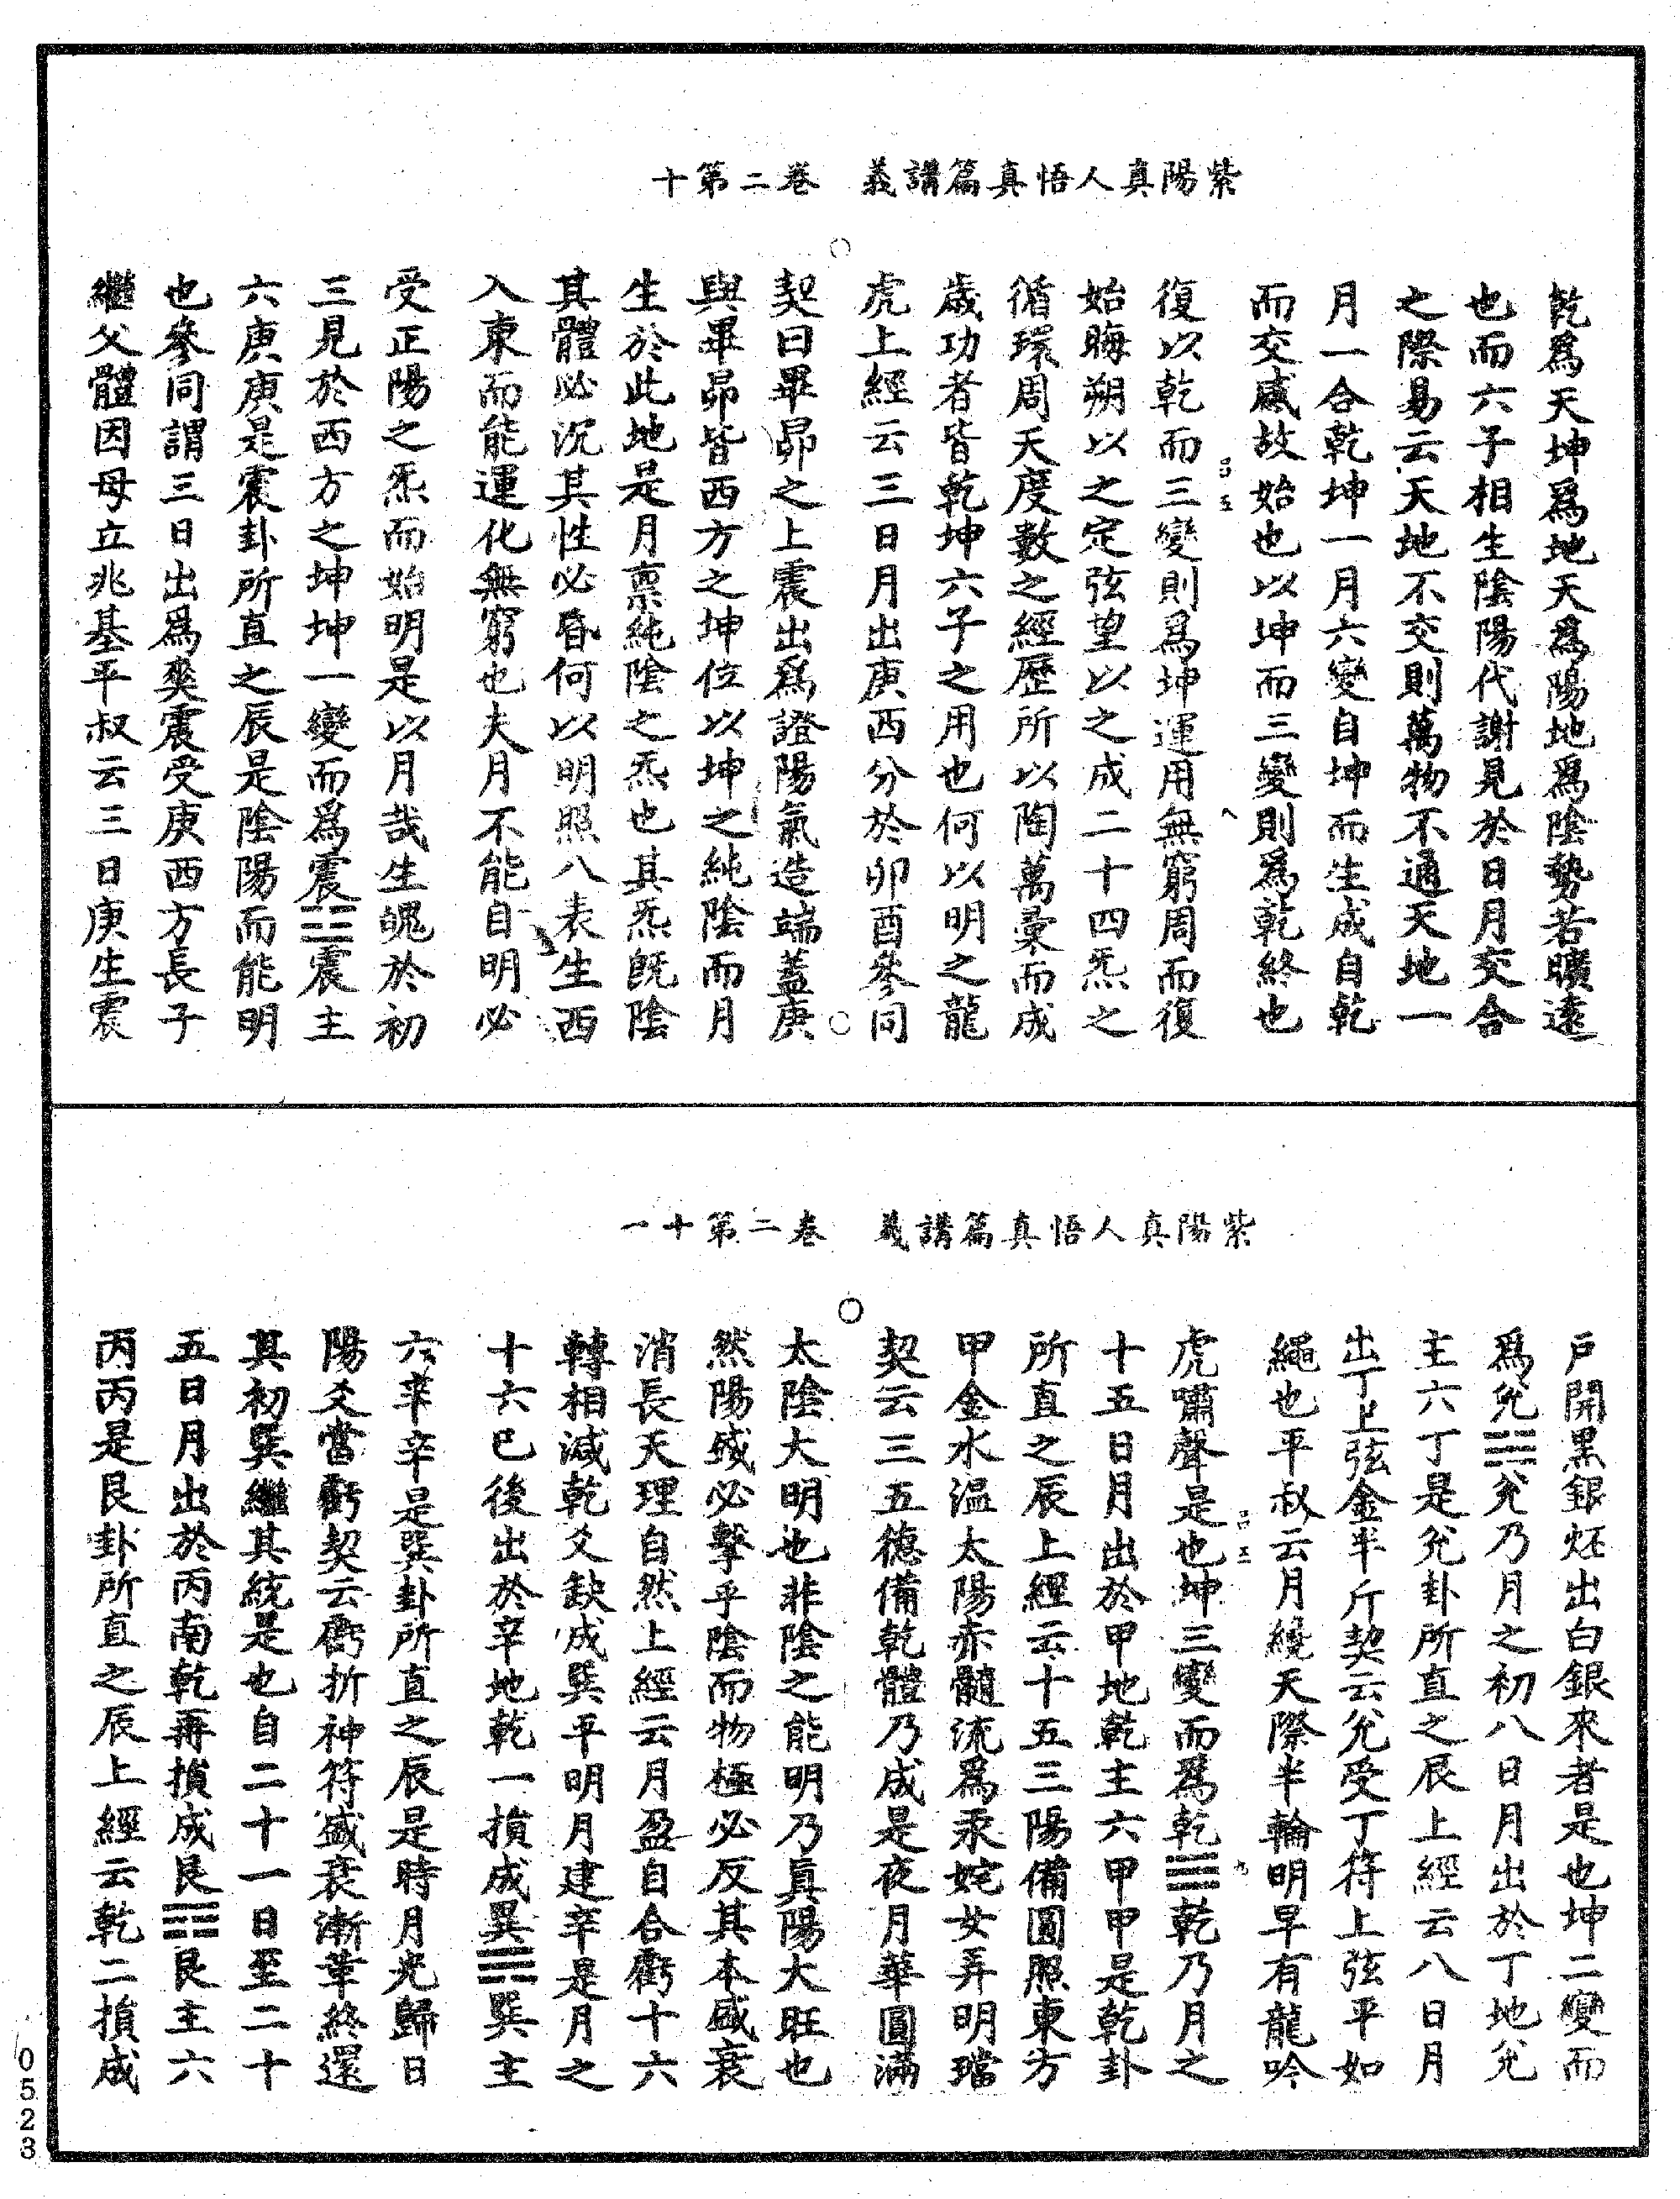 紫陽真人悟真篇講義　卷二第十
乾爲天坤爲地天爲陽地爲陰勢若曠遠
也而六子相生陰陽代謝見於日月交合
之際易云天地不交則萬物不通天地一
月一合乾坤一月六變自坤而生成自乾
而交感故始也以坤而三變則爲乾終也
復以乾而三變則爲坤運用無窮周而復
始晦朔以之定弦望以之成二十四炁之
循環周天度數之經歷所以陶萬彙而成
歲功者皆乾坤六子之用也何以明之龍
虎上經云三日月出庚西分於卯酉參同
契曰畢昴之上震出爲證陽氣造端蓋庚
與畢昴皆西方之坤位以坤之純陰而月
生於此地是月稟純陰之炁也其炁既陰
其體必沉其性必昏何以明照八表生西
入東而能運化無窮也夫月不能自明必
受正陽之炁而始明是以月哉生魄於初
三見於西方之坤坤一變而爲震☳震主
六庚庚是震卦所直之辰是陰陽而能明
也參同謂三日出爲爽震受庚西方長子
繼父體因母立兆基平叔云三日庚生震
紫陽真人悟真篇講義　卷二第十一
戶開黑銀炉出白銀來者是也坤二變而
爲兊☱兊乃月之初八日月出於丁地兊
主六丁是兊卦所直之辰上經云八日月
出丁上弦金半斤契云兊受丁符上弦平如
繩也平叔云月繞天際半輪明早有龍吟
虎嘯聲是也坤三變而爲乾☰乾乃月之
十五日月出於甲地乾主六甲甲是乾卦
所直之辰上經云十五三陽備圓照東方
甲金水温太陽赤髓流爲汞姹女弄明璫
契云三五德備乾體乃成是夜月華圓滿
太陰大明也非陰之能明乃真陽大旺也
然陽殘必擊乎陰而物極必反其本盛衰
消長天理自然上經云月盈自合虧十六
轉相減乾爻缺成巽平明月建辛是月之
十六巳後出於辛地乾一損成巽☴巽主
六辛辛是巽卦所直之辰是時月光歸日
陽爻當虧契云虧折神符盛衰漸革終還
其初巽繼其統是也自二十一日至二十
五日月出於丙南乾再損成艮☶艮主六
丙丙是艮卦所直之辰上經云乾二損成
0523